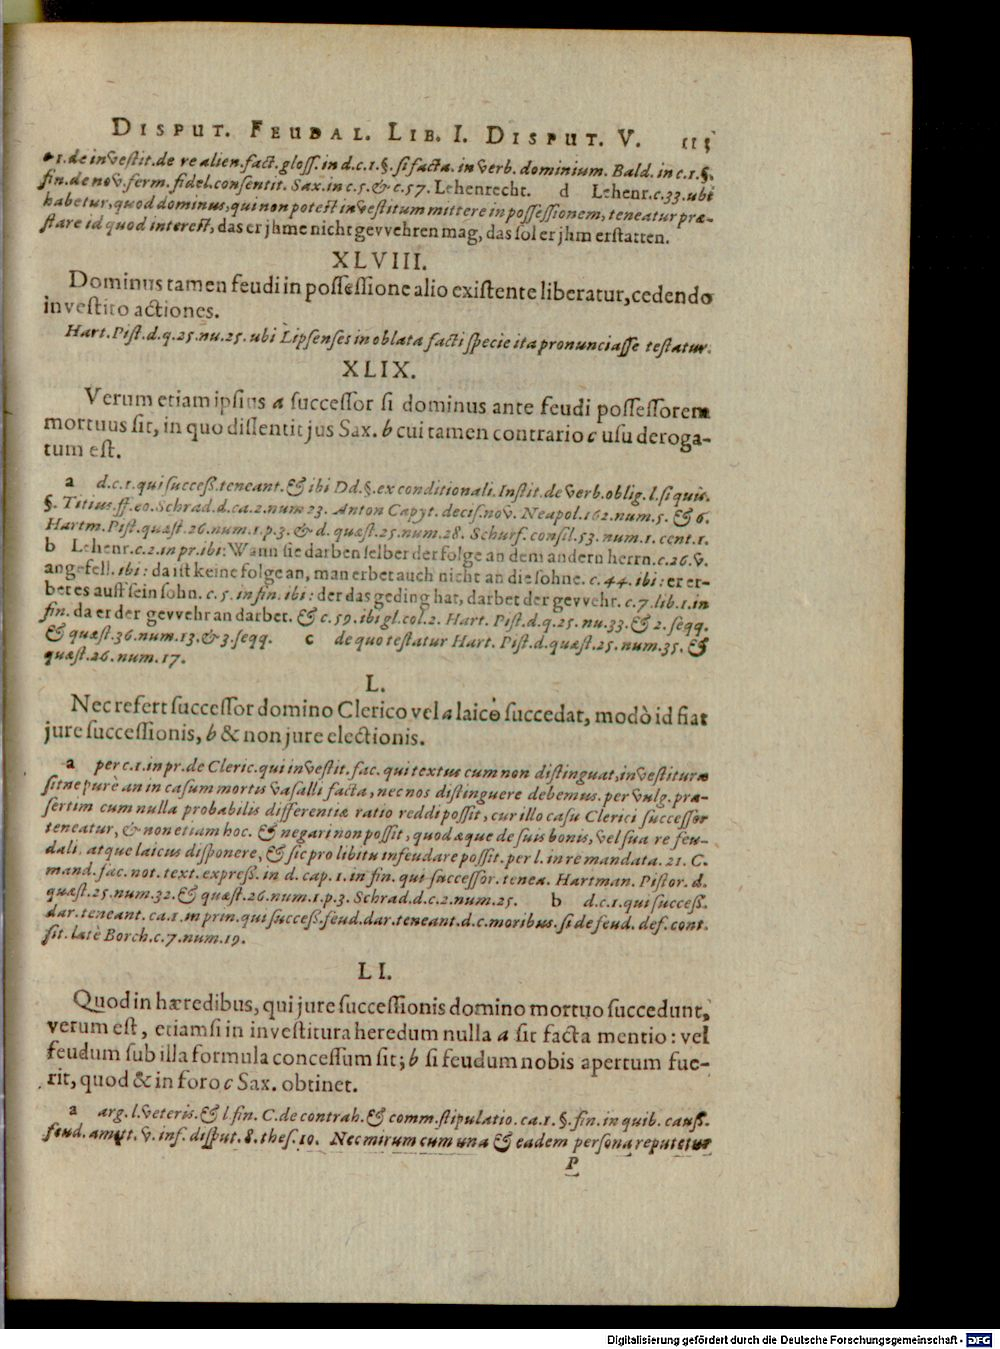 DISPUT. FEUDAL. LIB. I. DISPUT. V. 113
1. de investit. de re alien. fact. gloss. in d. c. 1. §. si facta. in verb. dominium. Bald. in c. 1. §.
fin. de nov. ferm. fidel. consentit. Sax. in c. 5. & c. 57. Lehenrecht. d Lehenr. c. 33. ubi
habetur, quod dominus, qui non potest investitum mittere in possessionem, teneatur præ-
stare id quod interest, das er jhme nicht gevvehren mag, das sol er jhm erstatten.
XLVIII.
Dominus tamen feudi in possessione alio existente liberatur, cedendo
investito actiones.
Hart. Pist. d. q. 25. nu. 25. ubi Lipsenses in oblata facti specie ita pronunciasse testatur.
XLIX.
Verum etiam ipsius a successor si dominus ante feudi possessorem
mortuus sit, in quo dissentit jus Sax. b cui tamen contrario c usu deroga-
tum est.
a d. c. 1. qui success. teneant. & ibi Dd. §. ex conditionali. Instit. de verb. oblig. l. si quis.
§. Titius. ff. eo. Schrad. d. ca. 2. num 23. Anton Capyt. decis. nov. Neapol. 162. num. 5. & 6.
Hartm. Pist. quæst. 26. num. 1. p. 3. & d. quæst. 25. num. 28. Schurf. consil. 53. num. 1. cent. 1.
b Lehenr. c. 2. in pr. ibi: Wann sie darben selber der folge an dem andern herrn. c. 26. v.
angefell. ibi: da ist keine folge an, man erbet auch nicht an die sohne. c. 44. ibi: er er-
bet es auff sein sohn. c. 5. in fin. ibi: der das geding hat, darbet der gevvehr. c. 7. lib. 1. in
fin. da er der gevvehr an darbet. & c. 59. ibi gl. col. 2. Hart. Pist. d. q. 25. nu. 33. & 2. seqq.
& quæst. 36. num. 13. & 3. seqq. c de quo testatur Hart. Pist. d. quæst. 25. num. 35. &
quæst. 26. num. 17.
L.
Nec refert successor domino Clerico vel a laico succedat, modò id fiat
jure successionis, b & non jure electionis.
a per c. 1. in pr. de Cleric. qui investit. fac. qui textus cum non distinguat, investituræ
sitne purè an in casum mortis vasalli facta, nec nos distinguere debemus. per vulg. præ-
sertim cum nulla probabilis differentiæ ratio reddi possit, cur illo casu Clerici successor
teneatur, & non etiam hoc. & negari non possit, quod æque de suis bonis, vel sua re feu-
dali, atque laicus disponere, & sic pro libitu infeudare possit. per l. in re mandata. 21. C.
mand. fac. not. text. express. in d. cap. 1. in fin. qui successor. tenea. Hartman. Pistor. d.
quæst. 25. num. 32. & quæst. 26. num. 1. p. 3. Schrad. d. c. 2. num. 25. b d. c. 1. qui success.
dar. teneant. ca. 1. in prin. qui success. feud. dar. teneant. d. c. moribus. si de feud. def. cont.
sit. latè Borch. c. 7. num. 19.
LI.
Quod in hæredibus, qui jure successionis domino mortuo succedunt,
verum est, etiamsi in investitura heredum nulla a sit facta mentio: vel
feudum sub illa formula concessum sit; b si feudum nobis apertum fue-
rit, quod & in foro c Sax. obtinet.
a arg. l. veteris. & l. fin. C. de contrah. & comm. stipulatio. ca. 1. §. fin. in quib. causs.
feud. amit. v. inf. disput. 8. thes. 10. Nec mirum cum una & eadem persona reputetur
P
Digitalisierung gefördert durch die Deutsche Forschungsgemeinschaft - DFG